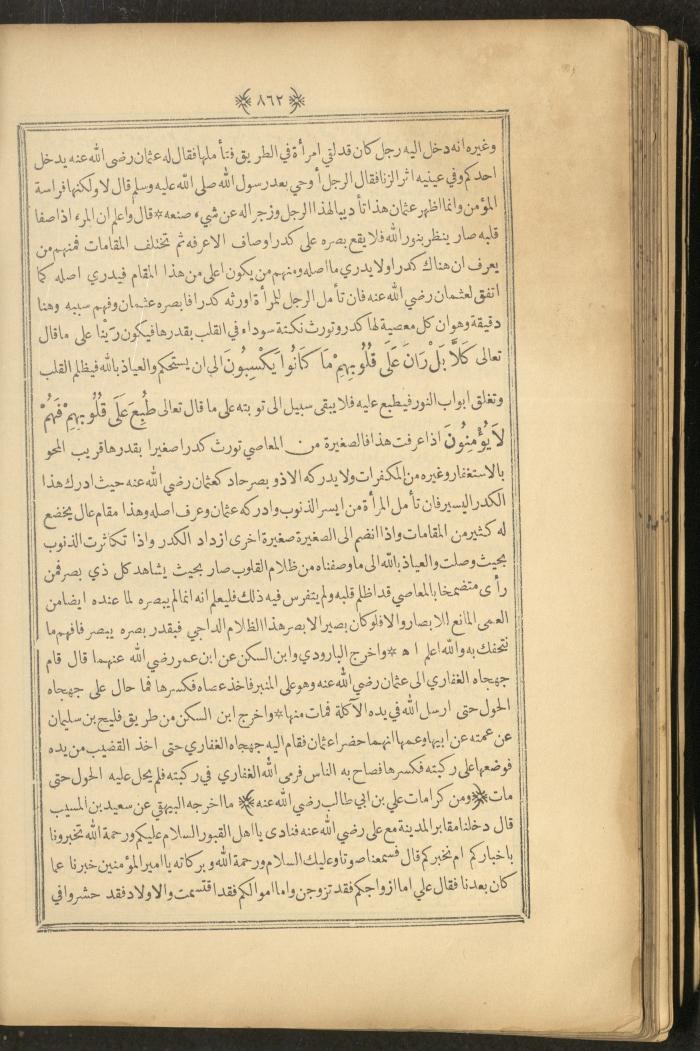 ٨٦٢
وغيره انه دخل اليه رجل كان قد لقي امرأة في الطريق فتأملها فقال له عثمان رضي الله عنه يدخل
احدكم وفي عينيه اثر الزنا فقال الرجل أوحي بعد رسول الله صلى الله عليه وسلم قال لا ولكنها فراسة
المؤمن وانما اظهر عثمان هذا تأديبا لهذا الرجل وزجرا له عن شيء صنعه * قال واعلم ان المرء اذا صفا
قلبه صار ينظر بنور الله فلا يقع بصره على كدر او صاف الا عرفه ثم تختلف المقامات فمنهم من
يعرف ان هناك كدرا ولا يدري ما اصله ومنهم من يكون اعلى من هذا المقام فيدري اصله كما
اتفق لعثمان رضي الله عنه فان تأمل الرجل للمرأة اورثه كدرا فابصره عثمان وفهم سببه وهنا
دقيقة وهو ان كل معصية لها كدر وتورث نكتة سوداء في القلب بقدرها فيكون رينا على ما قال
تعالى كَلاَّ بَلْ رَانَ عَلَى قُلُوبِهِمْ مَا كَانُوا يَكْسِبُونَ الى ان يستحكم والعياذ بالله فيظلم القلب
وتغلق ابواب النور فيطبع عليه فلا يبقى سبيل الى توبته على ما قال تعالى طُبِعَ عَلَى قُلُوبِهِمْ فَهُمْ
لاَ يُؤْمِنُونَ اذا عرفت هذا فالصغيرة من المعاصي تورث كدرا صغيرا بقدرها قريب المحو
بالاستغفار وغيره من المكفرات ولا يدركه الا ذو بصر حاد كعثمان رضي الله عنه حيث ادرك هذا
الكدر اليسير فان تأمل المرأة من ايسر الذنوب وادركه عثمان وعرف اصله وهذا مقام عال يخضع
له كثير من المقامات واذا انضم الى الصغيرة صغيرة اخرى ازداد الكدر واذا تكاثرت الذنوب
بحيث وصلت والعياذ بالله الى ما وصفناه من ظلام القلوب صار بحيث يشاهد كل ذي بصر فمن
رأى متضمخا بالمعاصي قد اظلم قلبه ولم يتفرس فيه ذلك فليعلم انه انما لم يبصره لما عنده ايضا من
العمى المانع للابصار والا فلو كان بصيرا لابصر هذا الظلام الداجي فبقدر بصره يبصر فافهم ما
نتحفك به والله اعلم ا ه * واخرج البارودي وابن السكن عن ابن عمر رضي الله عنهما قال قام
جهجاه الغفاري الى عثمان رضي الله عنه وهو على المنبر فاخذ عصاه فكسرها فما حال على جهجاه
الحول حتى ارسل الله في يده الآكلة فمات منها * واخرج ابن السكن من طريق فليح بن سليمان
عن عمته عن ابيها وعمها انهما حضرا عثمان فقام اليه جهجاه الغفاري حتى اخذ القضيب من يده
فوضعها على ركبته فكسرها فصاح به الناس فرمى الله الغفاري في ركبته فلم يحل عليه الحول حتى
مات * ومن كرامات علي بن ابي طالب رضي الله عنه * ما اخرجه البيهقي عن سعيد بن المسيب
قال دخلنا مقابر المدينة مع علي رضي الله عنه فنادى يا اهل القبور السلام عليكم ورحمة الله تخبرونا
باخباركم ام نخبركم قال فسمعنا صوتا وعليك السلام ورحمة الله وبركاته يا امير المؤمنين خبرنا عما
كان بعدنا فقال علي اما ازواجكم فقد تزوجن واما اموالكم فقد اقتسمت والاولاد فقد حشروا في